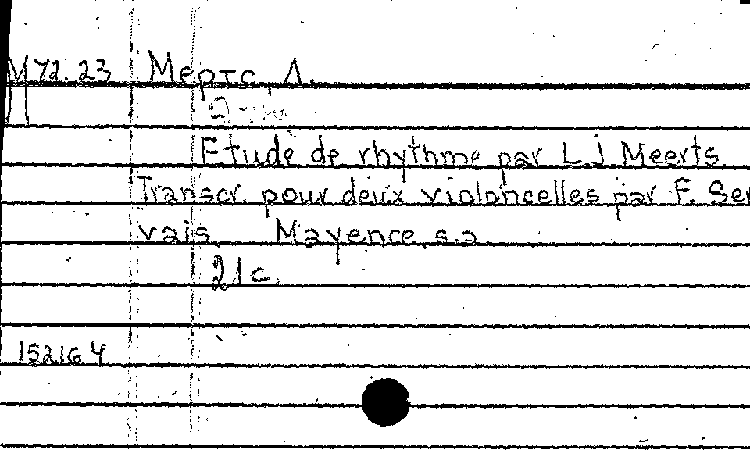 М72.23 Мертс, Л.
Etude de rhythme par L.J Meerts
Transcr. pour deux violoncelles par F. Ser
vais. Mayence, s.a.
21 c.
152164